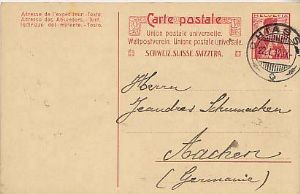 Adresse de l'expéditeur. - Texte.
Adresse des Absenders. - Text.
Carte postale
Union postale universelle.
Weltpostverein. Unione postale universale.
SCHWEIZ. SUISSE. SVIZZERA.
CHIASSO
Herrn
Jeandres Schumacher
Aachen
(Germania)